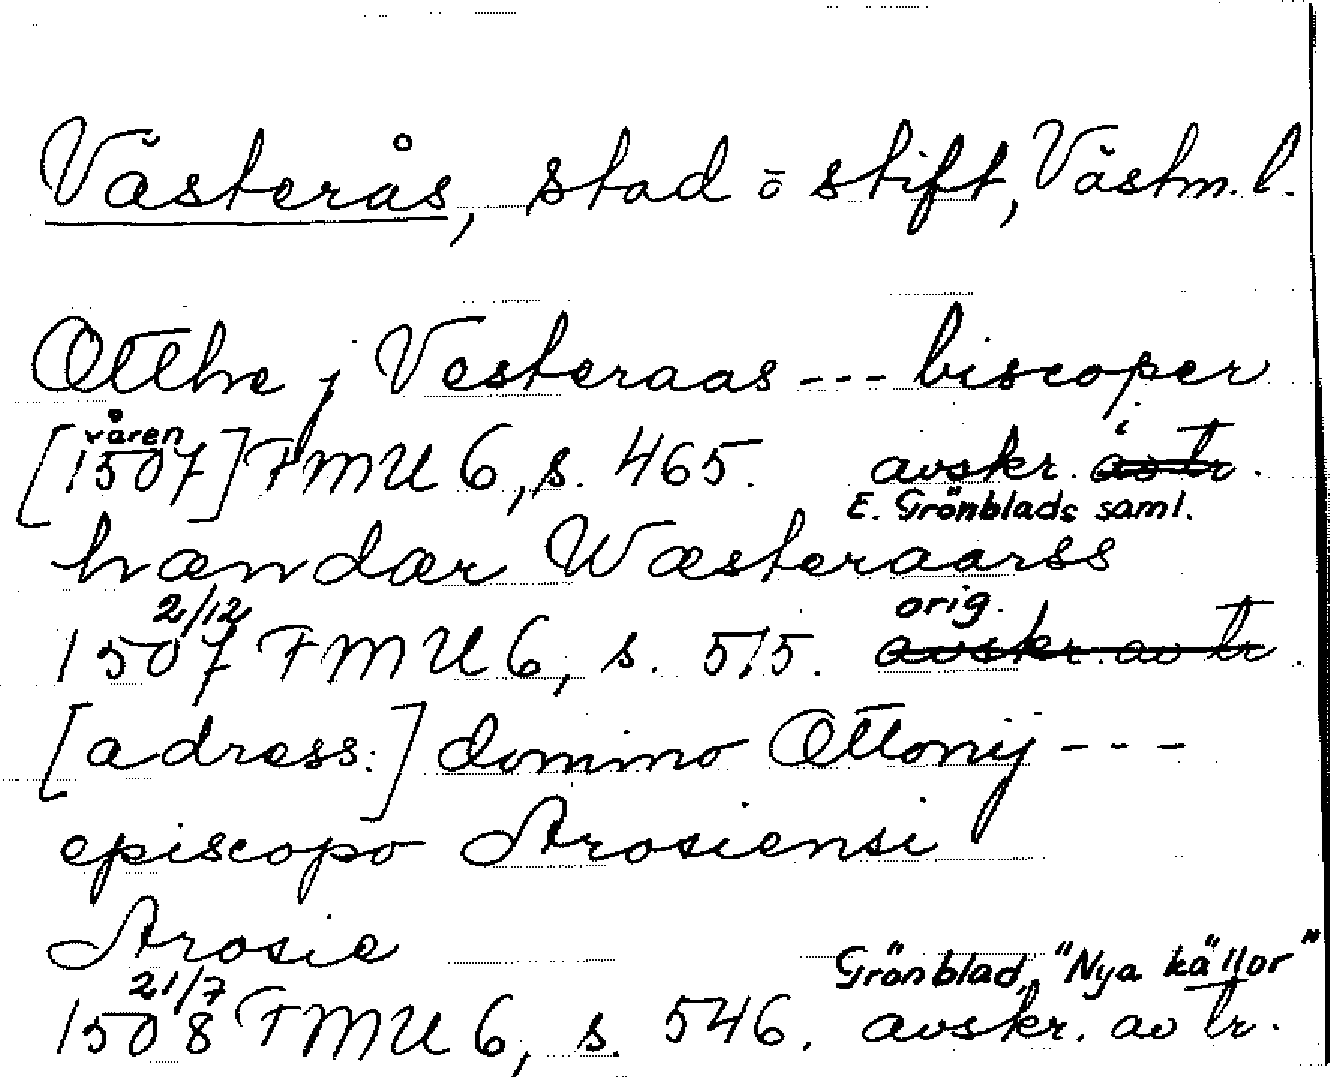 Västerås, stad o stift, Västm. l.
Otthe j Vesteraas --- biscoper
[våren 1507] FMU 6, s. 465. avskr. av tr.
E. Grönblads saml.
hændær Wæsteraarss
2/12 orig.
1507 FMU 6, s. 515. avskr. av tr.
[adress:] domino Ottonij ---
episcopo Arosiensi
Arosie
21/7 Grönblad, "Nya källor"
1508 FMU 6, s. 546. avskr. av tr.